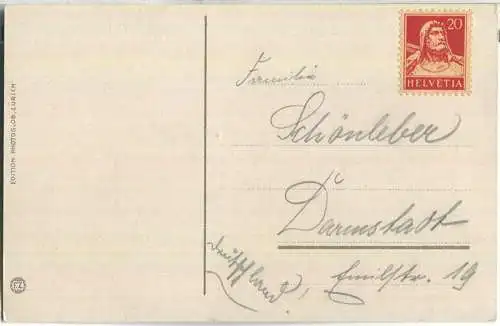 EDITION PHOTOGLOB, ZÜRICH
20
HELVETIA
Familie
Schönleber
Darmstadt
Emilstr. 19
Deutschland